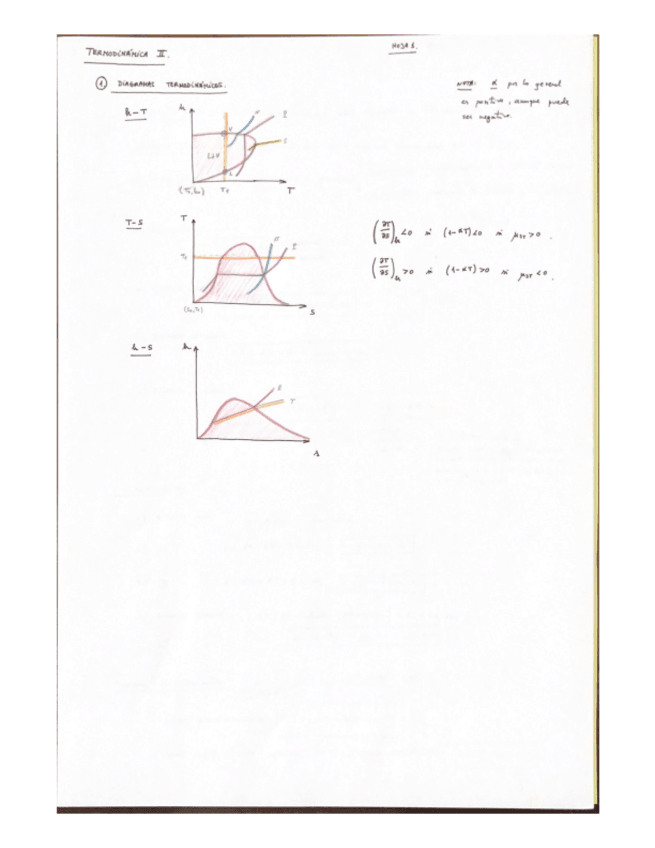 TERMODINÁMICA II.
HOJA 1.
1 DIAGRAMAS TERMODINÁMICOS.
NOTA: α por lo general
es positivo, aunque puede
ser negativo.
h-T
h
P
S
L+V
T
T-S
T
P
S
(∂T/∂S)h <0 si (1-αT)<0 si μJT>0.
(∂T/∂S)h >0 si (1-αT)>0 si μJT<0.
h-s
h
P
T
s